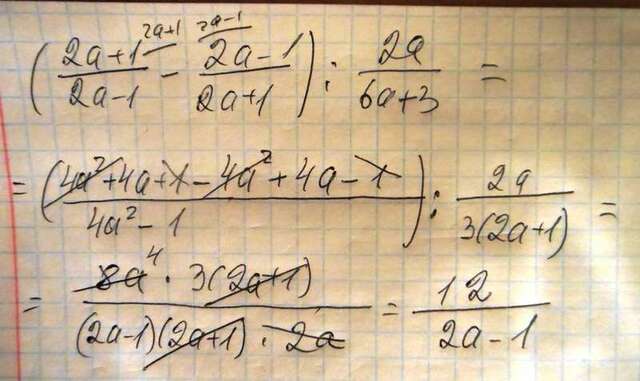 ( (2a+1)/(2a-1) ^2a+1 - (2a-1)/(2a+1) ^2a-1 ) : 2a/(6a+3) =
= ( (4a²+4a+1-4a²+4a-1)/(4a²-1) ) : 2a/(3(2a+1)) =
= (8a ⁴ · 3(2a+1))/((2a-1)(2a+1) · 2a) = 12/(2a-1)